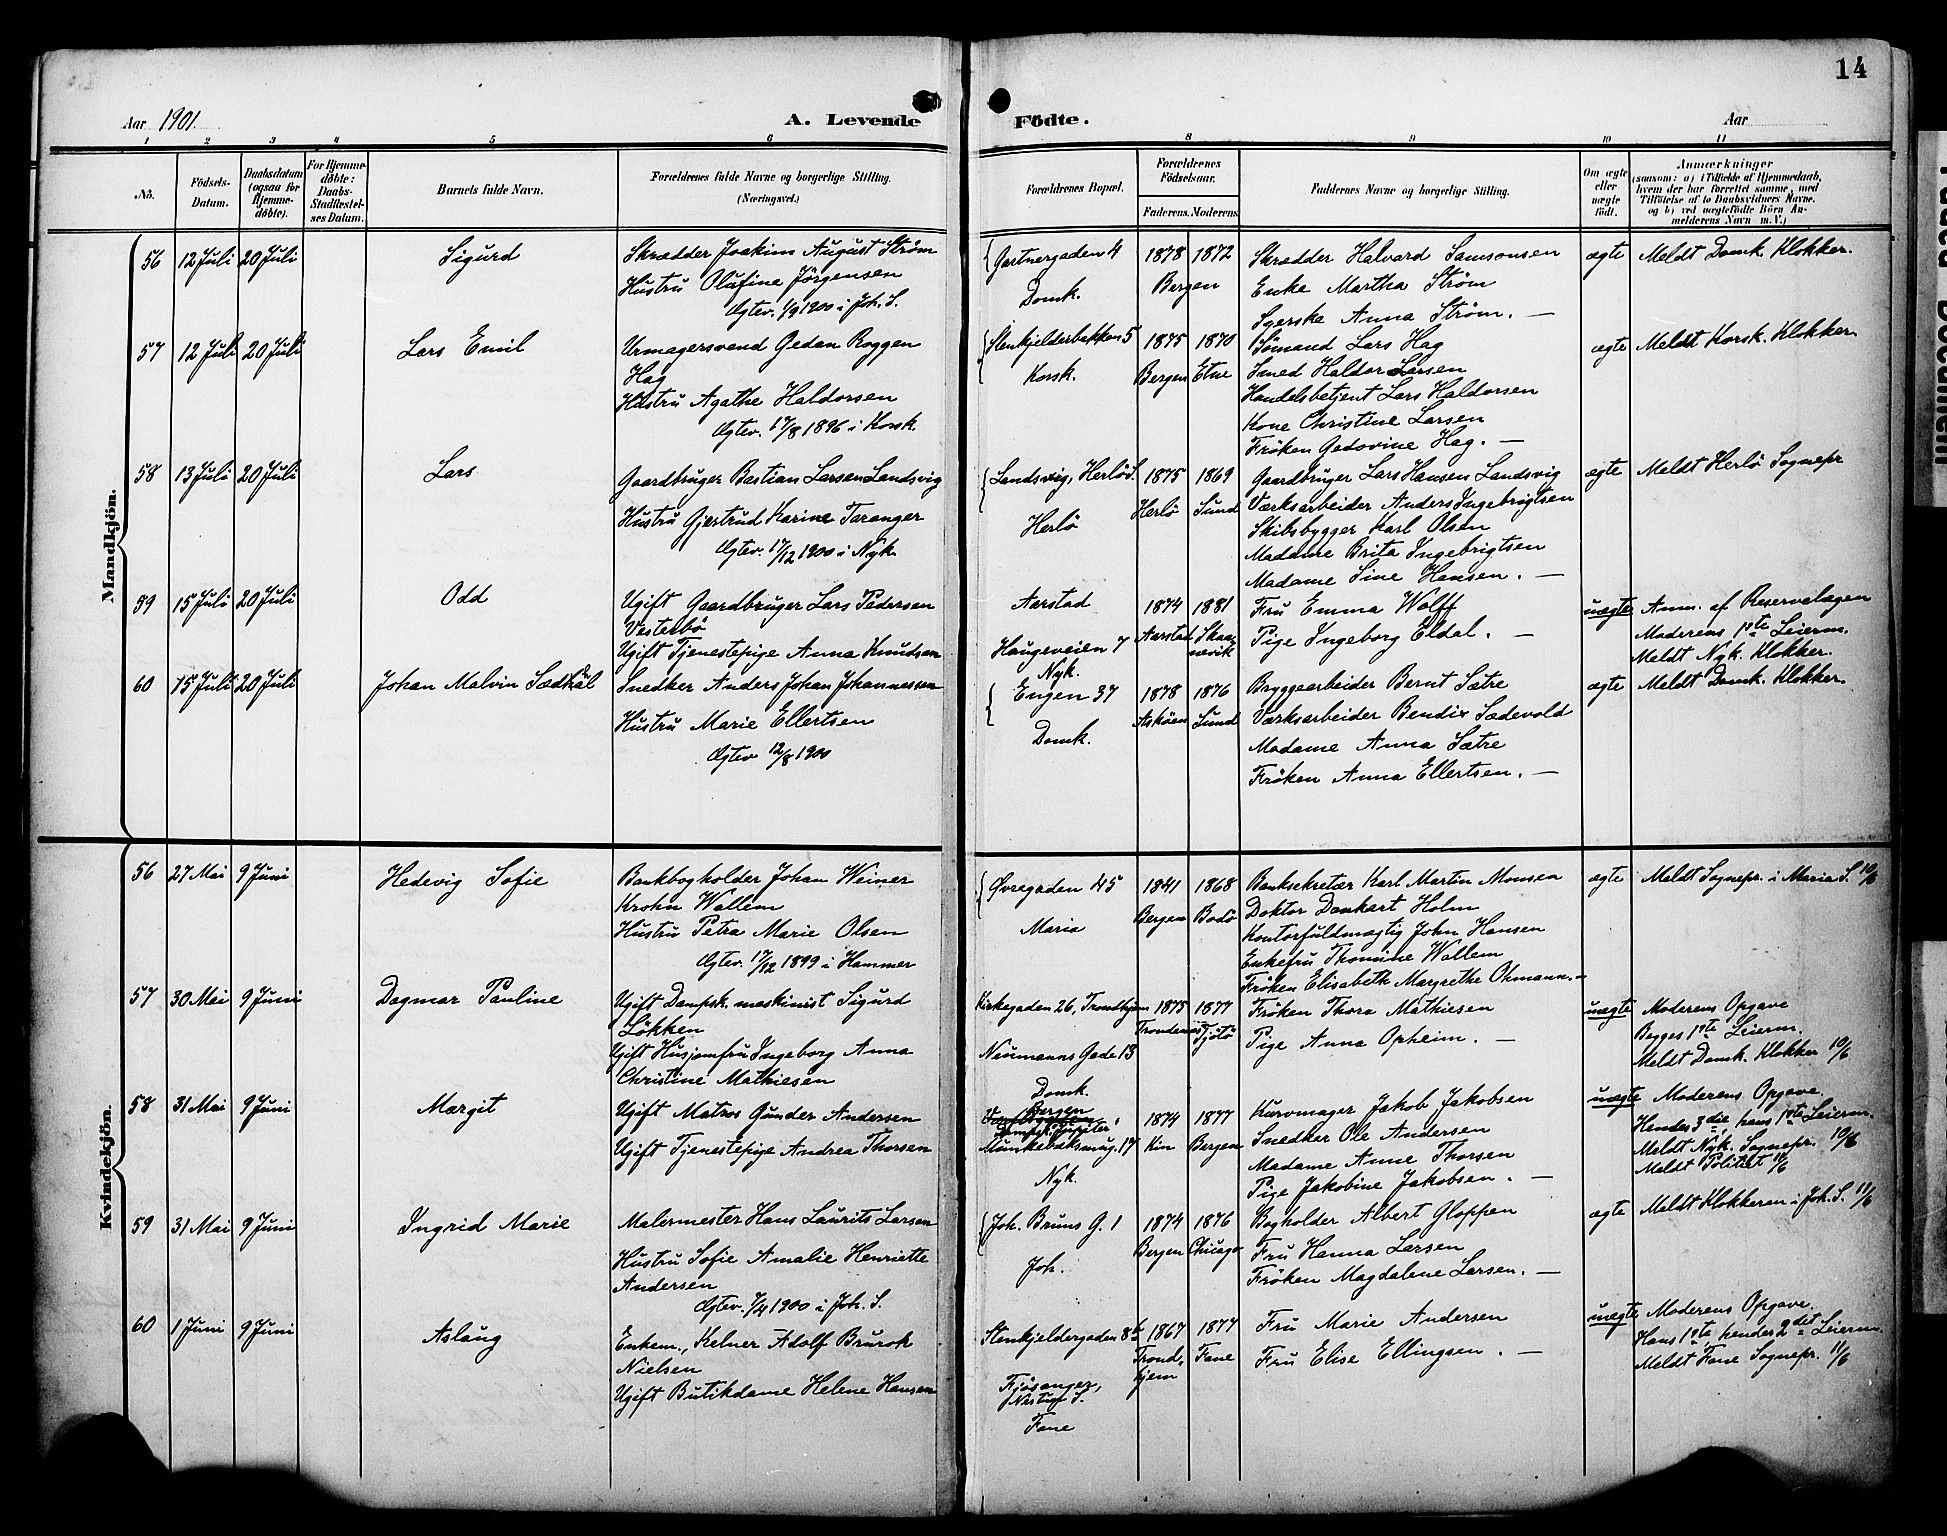 14
Aar 1901.
A. Levende Födte.
Aar
1 2 3 4 5 6 8 9 10 11
No.
Födsels-Datum.
Daabsdatum (ogsaa for Hjemme-døbte).
For Hjemme-døbte: Daabs-Stadfæstel-ses Datum.
Barnets fulde Navn.
Forældrenes fulde Navne og borgerlige Stilling. (Næringsvei.)
Forældrenes Bopæl.
Forældrenes Fødselsaar.
Faderens. Moderens.
Faddernes Navne og borgerlige Stilling.
Om ægte eller uægte født.
Anmærkninger
(saasom: a) i Tilfælde af Hjemmedaab, hvem der har forrettet samme, med Tilføielse af to Daabsvidners Navne, og b) ved uægtefödte Börn An-melderens Navn m. V.)
Mandkjön.
56 12 Juli 20 Juli Sigurd
Skrædder Joakim August Strøm
Hustru Olufine Jörgensen
Ægtev. 1/9 1900 i Joh. S.
Gartnergaden 4
Domk.
1878 1872
Bergen
Skrædder Halvard Samsonsen
Enke Martha Strøm
Syerske Anna Strøm. —
ægte Meldt Domk. Klokker.
57 12 Juli 20 Juli Lars Emil
Urmagersvend Gedan Roggen
Hag
Hustru Agathe Haldorsen
Ægtev. 17/8 1896 i Korsk.
Stenkjelderbakken 5
Korsk.
1875 1870
Bergen Etne
Sømand Lars Hag
Smed Haldor Larsen
Handelsbetjent Lars Haldorsen
Kone Christine Larsen
Frøken Gedovine Hag. —
ægte Meldt Korsk. Klokker.
58 13 Juli 20 Juli Lars
Gaardbruger Bastian Larsen Landsvig
Hustru Gjertrud Karine Taranger
Ægtev. 17/12 1900 i Nyk.
Landsvig, Herlö S.
Herlö
1875 1869
Herlö Sund
Gaardbruger Lars Hansen Landsvig
Værksarbeider Anders Ingebrigtsen
Skibsbygger Karl Olsen
Madame Brita Ingebrigtsen
Madame Sine Hansen. —
ægte Meldt Herlö Sognepr
59 15 Juli 20 Juli Odd
Ugift Gaardbruger Lars Pedersen
Vesterbö
Ugift Tjenestepige Anna Knudsen
Aarstad
Haugeveien 7
Nyk.
1874 1881
Aarstad Skaanevik
Fru Emma Wolff
Pige Ingeborg Eldal. —
uægte Anm. af Reservelægen
Moderens 1ste Leierm.
Meldt Nyk. Klokker.
60 15 Juli 20 Juli Johan Malvin Sædkål
Snedker Anders Johan Johannessen
Hustru Marie Ellertsen
Ægtev 12/8 1900
Engen 37
Domk.
1878 1876
Askøen Sund
Bryggearbeider Bernt Sætre
Værksarbeider Bendix Sædevold
Madame Anna Sætre
Frøken Anna Ellertsen. —
ægte Meldt Domk. Klokker.
Kvindekjön.
56 27 Mai 9 Juni Hedevig Sofie
Bankbogholder Johan Weiner
Krohn Wallem
Hustru Petra Marie Olsen
Ægtev. 17/12 1899 i Hammer
Øvregaden 45
Maria
1841 1868
Bergen Bodö
Banksekretær Karl Martin Monsen
Doktor Dankart Holm
Kontorfuldmægtig John Hansen
Enkefru Thomine Wallem
Frøken Elisabeth Margrethe Ohmann. —
ægte Meldt Sognepr. i Maria S. 10/6
57 30 Mai 9 Juni Dagmar Pauline
Ugift Dampsk. maskinist Sigurd
Løkken
Ugift Husjomfru Ingeborg Anna
Christine Mathiesen
Kirkegaden 26, Trondhjem
Neumanns Gade 13
Domk.
1875 1877
Trondenæs Tjötö
Frøken Thora Mathiesen
Pige Anna Opheim. —
uægte Moderens Opgave
Begges 1ste Leierm.
Meldt Domk. Klokker 10/6
58 31 Mai 9 Juni Margit
Ugift Matros Gunder Andersen
Ugift Tjenestepige Andrea Thorsen
Bergen
Dampsk. "Jupiter"
Munkebæksmug. 17
Nyk.
1874 1877
Kin Bergen
Kurvmager Jakob Jakobsen
Snedker Ole Andersen
Madame Anne Thorsen
Pige Jakobine Jakobsen. —
uægte Moderens Opgave.
Hendes 3die hans 1ste Leierm.
Meldt Nyk. Sognepr. 10/6
Meldt Politiet 11/6
59 31 Mai 9 Juni Ingrid Marie
Malermester Hans Laurits Larsen
Hustru Sofie Amalie Henriette
Andersen
Ægtev. 7/4 1900 i Joh. S.
Joh. Bruns G. 1
Joh.
1874 1876
Bergen Chicago
Bogholder Albert Gloppen
Fru Hanna Larsen
Frøken Magdalene Larsen. —
ægte Meldt Klokkeren i Joh. S. 11/6
60 1 Juni 9 Juni Aslaug
Enkem., Kelner Adolf Brurok
Nielsen
Ugift Butikdame Helene Hansen
Stenkjeldergaden 8b
Fjøsanger,
Nestun S.
Fane
1867 1877
Trondhjem Fane
Fru Marie Andersen
Fru Elise Ellingsen. —
uægte Moderens Opgave.
Hans 1ste hendes 2det Leierm.
Meldt Fane Sognepr. 11/6